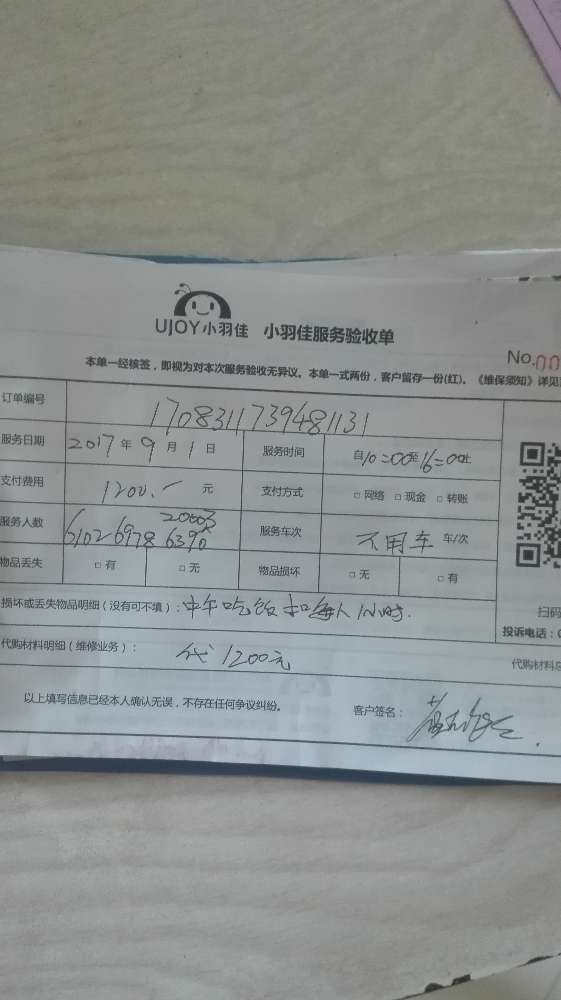 UJOY小羽佳 小羽佳服务验收单
No.00
本单一经核签，即视为对本次服务验收无异议。本单一式两份，客户留存一份(红)。《维保须知》详见
订单编号 1708311739481131
服务日期 2017年9月1日 服务时间 自10:00至16:00止
支付费用 1200.- 元 支付方式 □ 网络 □ 现金 □ 转账
服务人数 20003 服务车次 不用车 车/次
6102 6978 6390
物品丢失 □ 有 □ 无 物品损坏 □ 无 □ 有
损坏或丢失物品明细（没有可不填）：中午吃饭扣每人1小时.
扫码
投诉电话：
代购材料明细（维修业务）： 1200元
代购材料
以上填写信息已经本人确认无误，不存在任何争议纠纷。 客户签名：